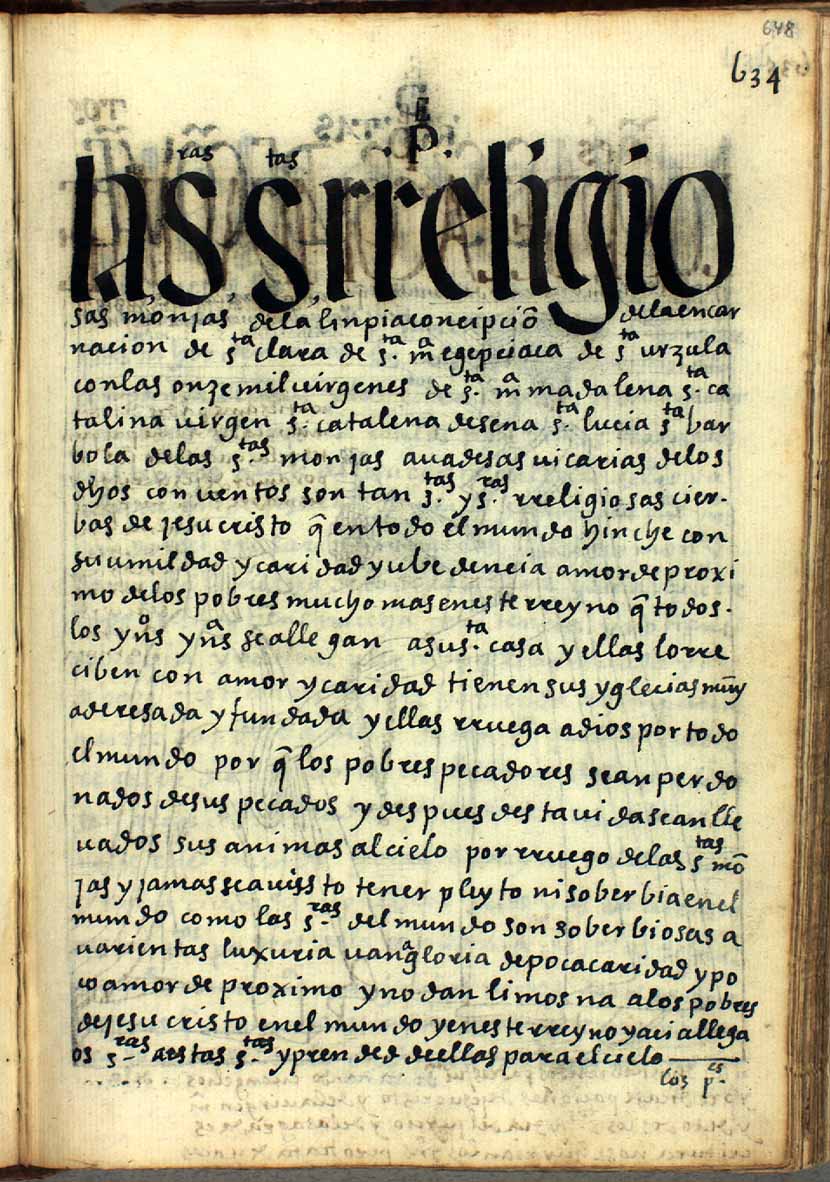 648
634
P.
las s.ras s.tas rreligio
sas monjas de la linpia concipciō de la encar
nacion de s.ta clara de s.ta m.a egepciaca de s.ta urzula
con las onze mil uirgenes de s.ta m.a madalena s.ta ca
talina uirgen s.ta catalena de sena s.ta lucia s.ta bar
bola de las s.tas monjas auadesas uicarias de los
dhos conuentos son tan s.tas y s.ras rreligiosas cier-
bas de jesucristo q̄ en todo el mundo hinche con
su umildad y caridad y ubedencia amor de proxi
mo de los pobres mucho mas en este rreyno q̄ todos
los yn̄os yn̄as se allegan a su s.ta casa y ellas lo rre
ciben con amor y caridad tienen sus yglecias muy
aderesada y fundada y ellas rruega a dios por todo
el mundo por q̄ los pobres pecadores sean perdo
nados de sus pecados y despues desta uida sean lle
uados sus animas al cielo por rruego de las s.tas mō
jas y jamas se a uissto tener pleyto ni soberbia en el
mundo como las s.ras del mundo son soberbiosas a
uarientas luxuria uanagloria de poca caridad y po
co amor de proximo y no dan limosna a los pobres
de jesucristo en el mundo y en este rreyno y aci allega
os s.ras a estas s.tas y prended de ellas para el cielo
los p.es